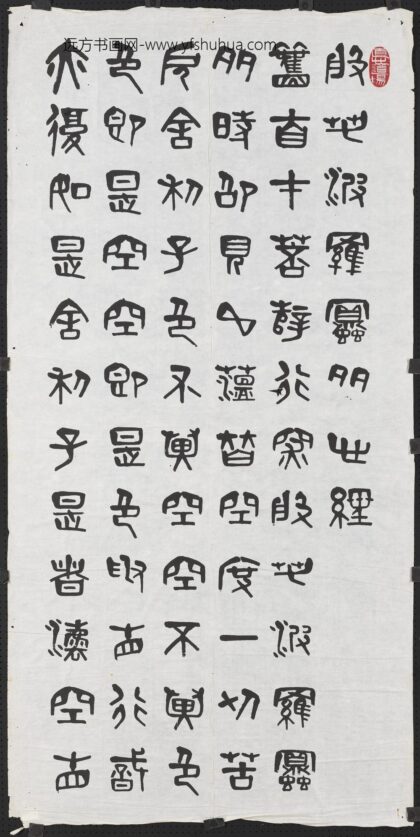 远方书画网-www.yfshuhua.com
般若波羅蜜多心經
觀自在菩薩行深般若波羅蜜
多時照見五蘊皆空度一切苦
厄舍利子色不異空空不異色
色即是空空即是色受想行識
亦復如是舍利子是諸法空相